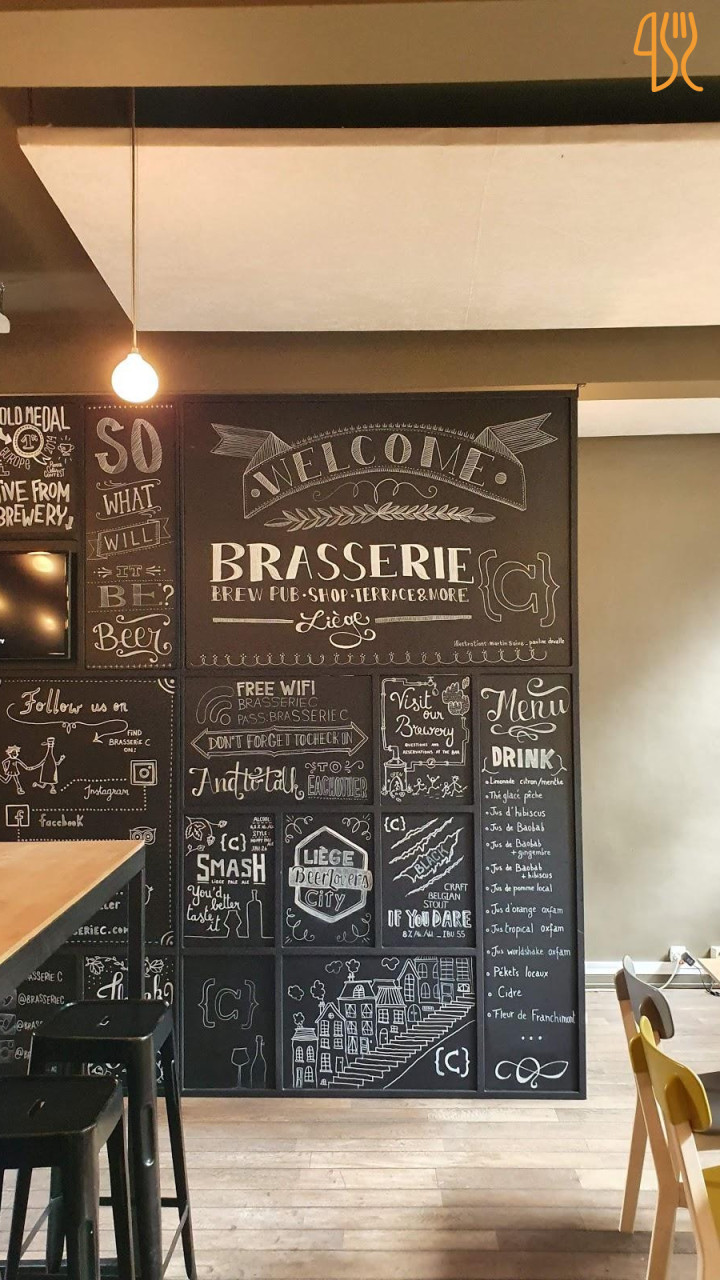 OLD MEDAL
1st
EUROPE 2019
IVE FROM
BREWERY
SO
WHAT
WILL
IT
BE?
Beer
WELCOME
BRASSERIE
{C}
BREW PUB·SHOP·TERRACE&MORE
Liège
Follow us on
FIND
BRASSERIE C
ON:
Instagram
f facebook
SERIEC.COM
ASSERIE.C
@BRASSERIEC
FREE WIFI
BRASSERIE C
PASS:BRASSERIE C
DON'T FORGET TO CHECK IN
And to talk TO
EACHOTHER
Visit
our
Brewery
QUESTIONS AND
RESERVATIONS AT THE BAR
{C}
SMASH
LIEGE PALE ALE
You'd
better
taste
it
LIÈGE
BeerLovers
CITY
{C}
BLACK
CRAFT
BELGIAN
STOUT
IF YOU DARE
8% ALC. VOL _ IBU 55
{C}
{C}
Menu
DRINK
Limonade citron/menthe
Thé glacé pêche
Jus d'hibiscus
Jus de Baobab
Jus de Baobab
+ gingembre
Jus de Baobab
+ hibiscus
Jus de pomme local
Jus d'orange oxfam
Jus tropical oxfam
Jus worldshake oxfam
Pékets locaux
Cidre
Fleur de Franchimont